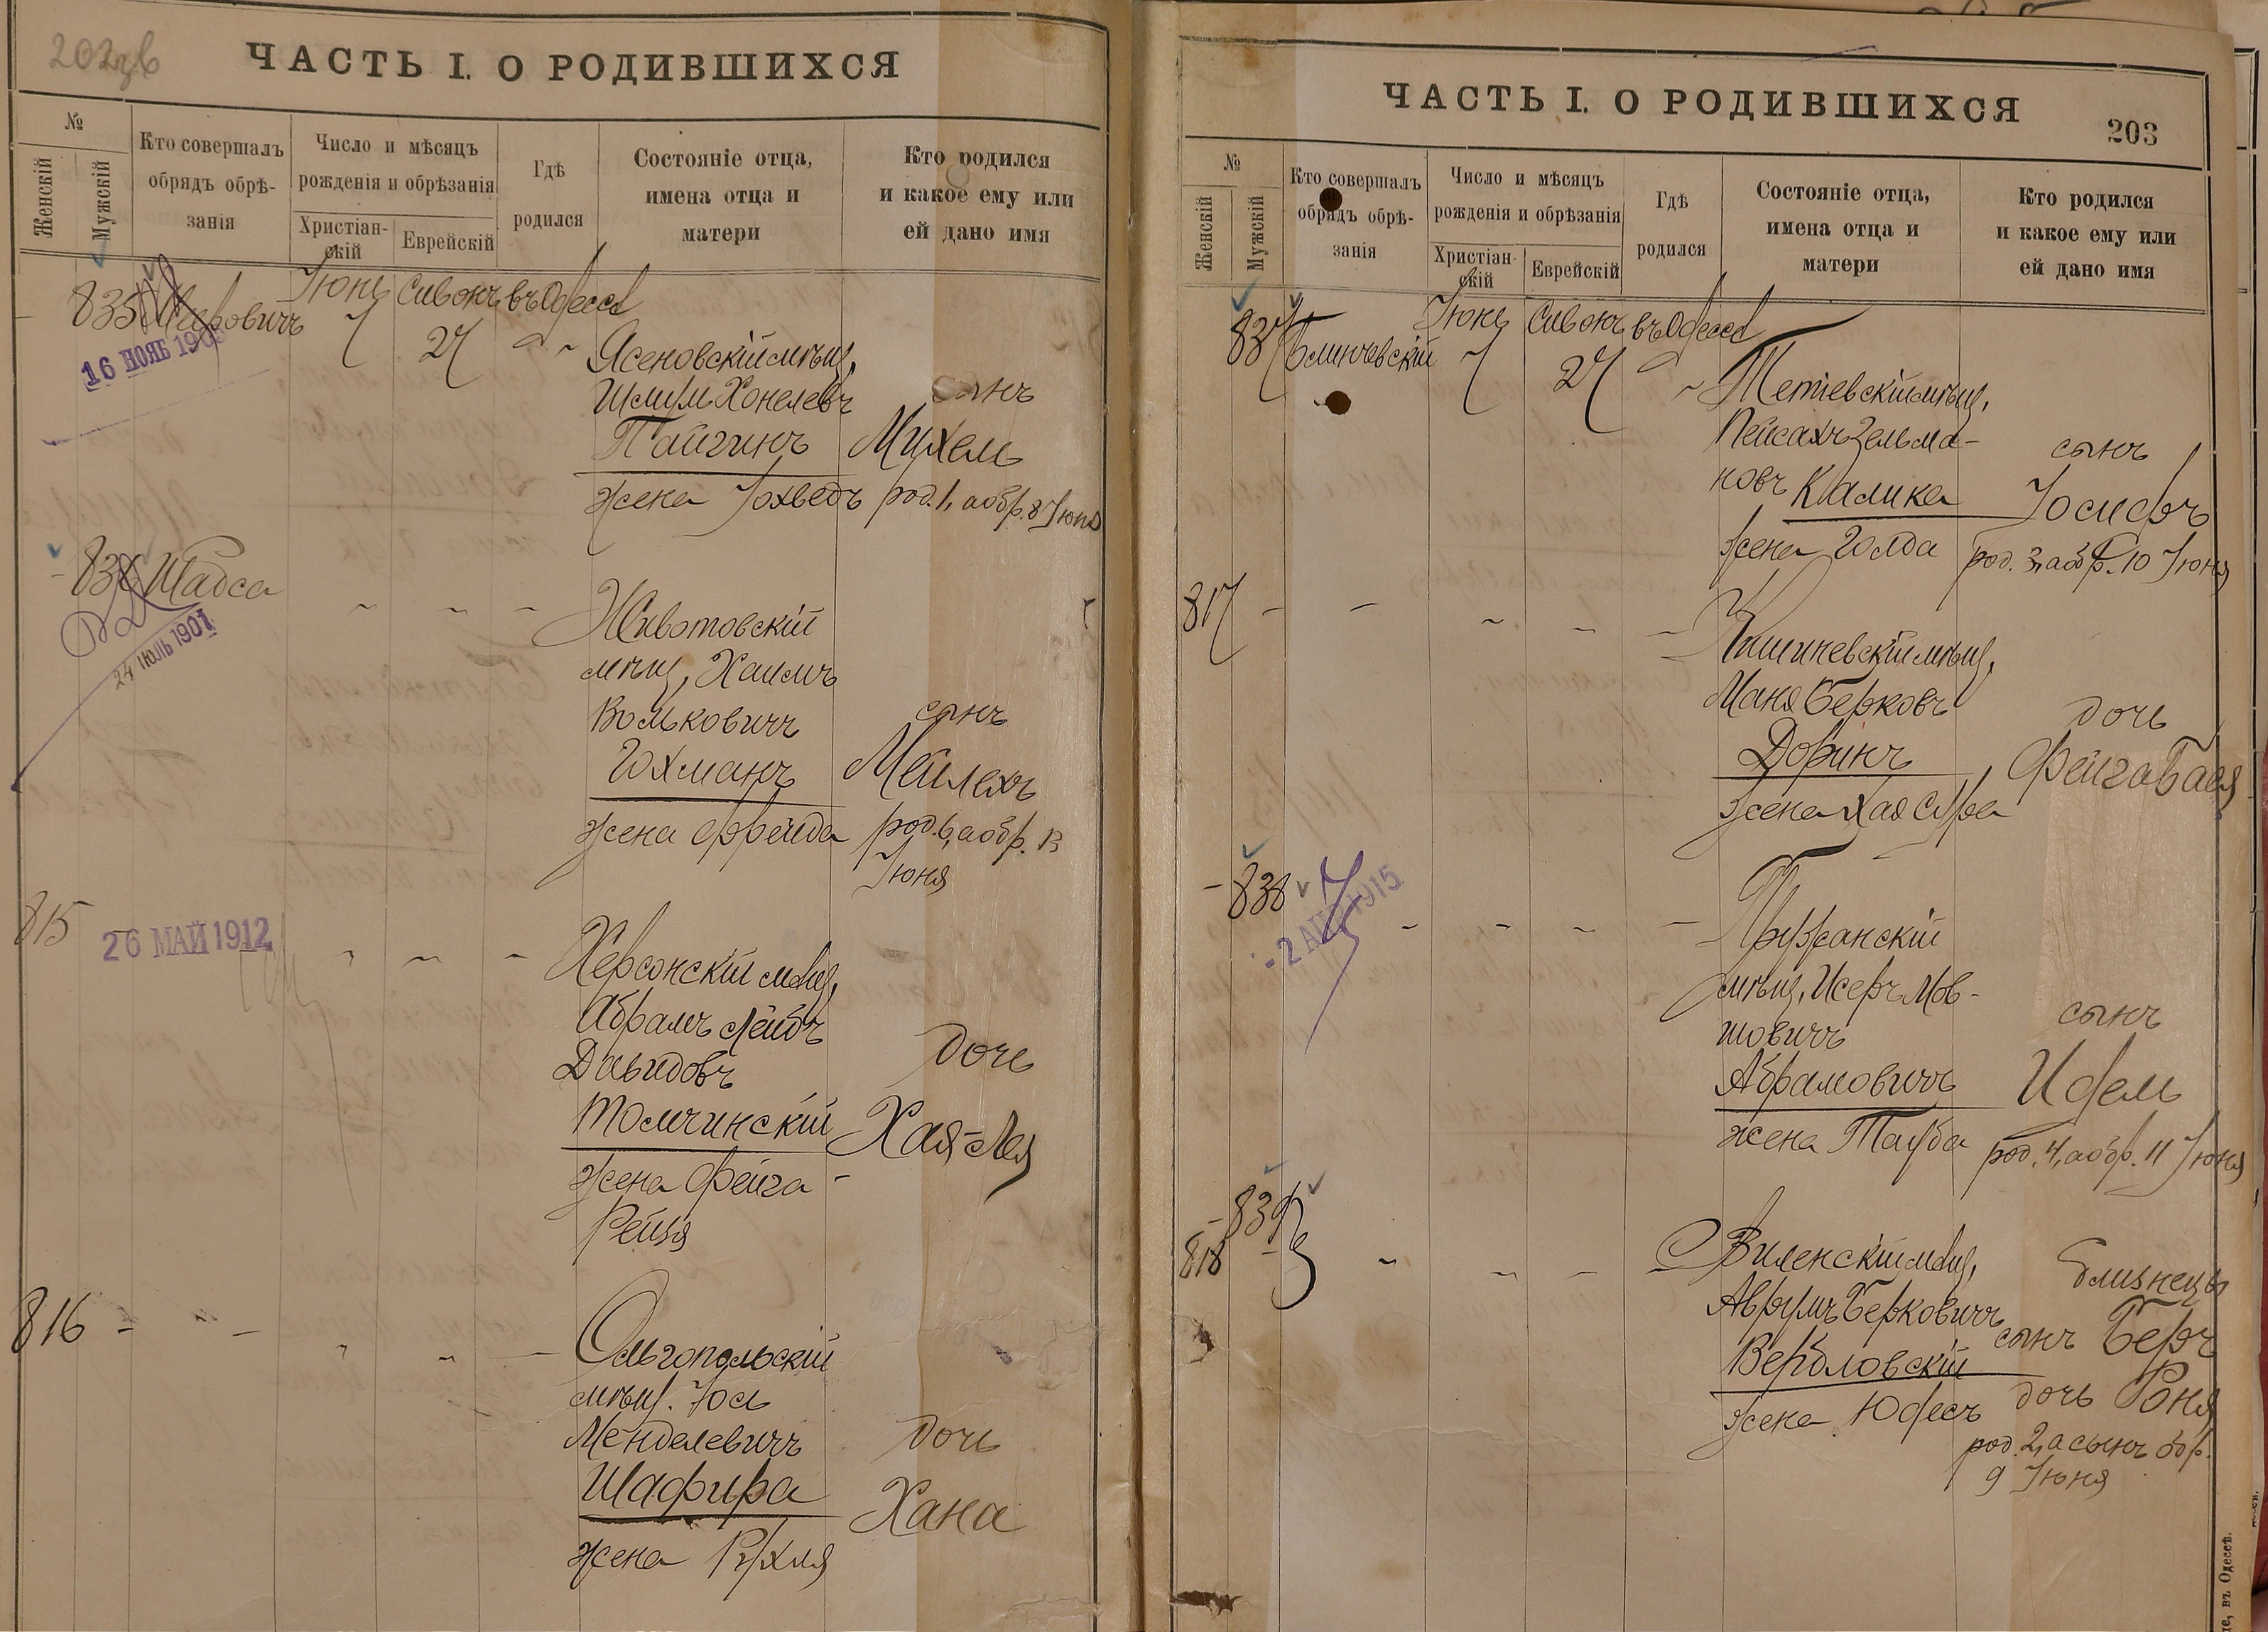 ЧАСТЬ I. О РОДИВШИХСЯ
№
Женскій
Мужскій
Кто совершалъ
обрядъ обрѣ-
занія
Число и мѣсяцъ
рожденія и обрѣзанія
Христіан-
скій
Еврейскій
Гдѣ
родился
Состояніе отца,
имена отца и
матери
Кто родился
и какое ему или
ей дано имя
835 Мееровичъ Іюнь Сивонъ въ Одессѣ
7 27
16 НОЯБ
Ясеновскій мѣщ.
Шлиум Хонелевъ сынъ
Пайгинъ Михель
жена Іохведъ род. 1, а обр. 8 Іюня
836 Шадса
24 ІЮЛЬ 1907
Животовскій
мѣщ. Хаимъ
Вольковичъ сынъ
Гохманъ Мейлехъ
жена Фрейда род. 6, а обр. 13
Іюня
815 26 МАЙ 1912
Херсонскій мѣщ.
Абрамъ Лейбъ
Давидовъ дочь
Томчинскій Хая-Лея
жена Фейга-
Рейзя
816
Ольгопольскій
мѣщ. Іось
Менделевичъ дочь
Шафира Хана
жена Рухля
ЧАСТЬ I. О РОДИВШИХСЯ
203
№
Женскій
Мужскій
Кто совершалъ
обрядъ обрѣ-
занія
Число и мѣсяцъ
рожденія и обрѣзанія
Христіан-
скій
Еврейскій
Гдѣ
родился
Состояніе отца,
имена отца и
матери
Кто родился
и какое ему или
ей дано имя
837 Блинчевскій Іюнь Сивонъ въ Одессѣ
7 27
Тетіевскій мѣщ.
Пейсахъ Зельма-
новъ Калика сынъ
Іосифъ
жена Голда род. 3, а обр. 10 Іюня
817
Кишиневскій мѣщ.
Маня Берковъ дочь
Доринъ Фейга Бася
жена Хая Сура
838
- 2 АПР 1915
мѣщ. Исеръ Мов-
шовичъ сынъ
Абрамовичъ Идель
жена Тауба род. 4, а обр. 11 Іюня
839
818
Виленскій мѣщ. близнецы
Аврумъ Берковичъ
Верболовскій сынъ Беръ
жена Юдесъ дочь Роня
род. 2, а сынъ обр.
9 Іюня
въ Одессѣ.